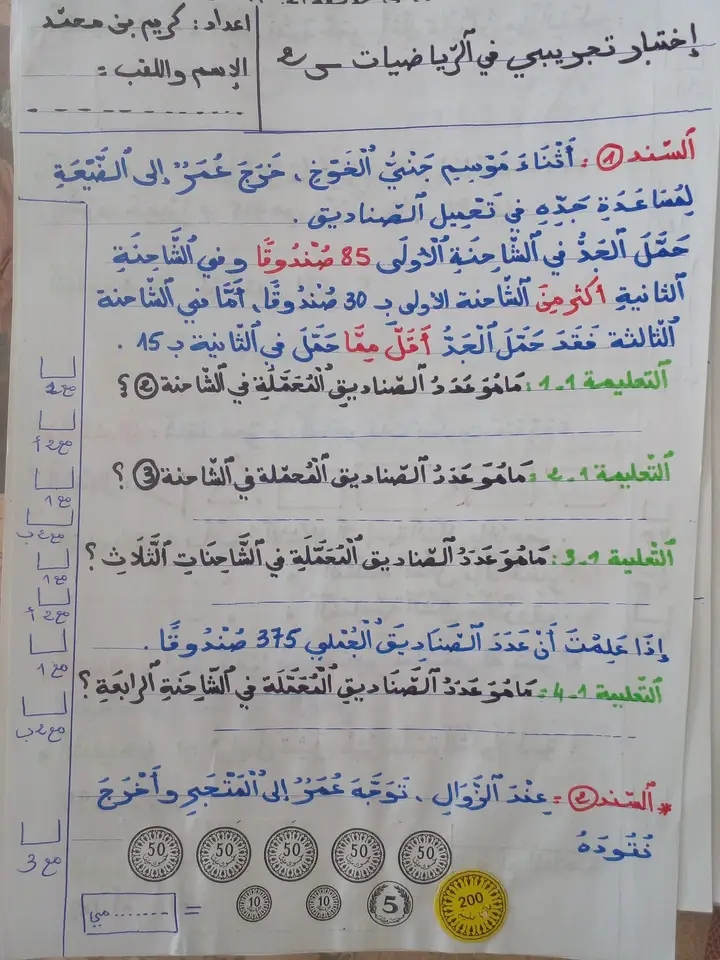 إختبار تجريبي في الرّياضيات س2
اعداد : كريم بن محمد
الإسم واللقب =
السند 1 : أَثْنَاءَ مَوْسِمِ جَنْيِ الْخَوْخِ، خَرَجَ عُمَرُ إلى الضَّيْعَةِ
لِمُسَاعَدَةِ جَدِّهِ في تَحْمِيلِ الصّناديق.
حَمَّلَ الجَدُّ في الشّاحِنَةِ الأولَى 85 صُنْدُوقًا وفي الشّاحِنَةِ
الثانيةِ أكثر مِنَ الشّاحنة الأولى بـ 30 صُنْدُوقًا، أمّا في الشّاحنة
الثّالثة فَقَدَ حَمّلَ الْجَدُّ أَقَلَّ مِمَّا حَمّلَ في الثّانية بـ 15 .
التعليمة 1-1 : مَا هُوَ عَدَدُ الصّناديقِ الْمُحَمَّلَةِ في الشّاحنة 2 ؟
التّعليمة 1-2 : مَا هُوَ عَدَدُ الصّناديق الْمُحمّلة في الشّاحنة 3 ؟
التّعليمة 1-3 : مَا هُوَ عَدَدُ الصّناديق الْمُحَمَّلَةِ في الشّاحِنَاتِ الثَّلَاثِ ؟
إِذَا عَلِمْتَ أَنَّ عَدَدَ الصَّنَادِيقَ الْجُمْلي 375 صُنْدُوقًا.
التّعليمة 1-4 : مَا هُوَ عَدَدُ الصّناديقِ الْمُحَمَّلَة في الشّاحِنَةِ الرابعَةِ ؟
مع1
مع2أ
مع1
مع2ب
مع1
مع2أ
مع1
مع2ب
* السّند 2 = عِنْدَ الزَّوَالِ، تَوَجَّهَ عُمَرُ إلى الْمَتْجَرِ وأَخْرَجَ
نُقُودَهُ
مع3
50 50 50 50 50
200 5 10 10 = ....... مي